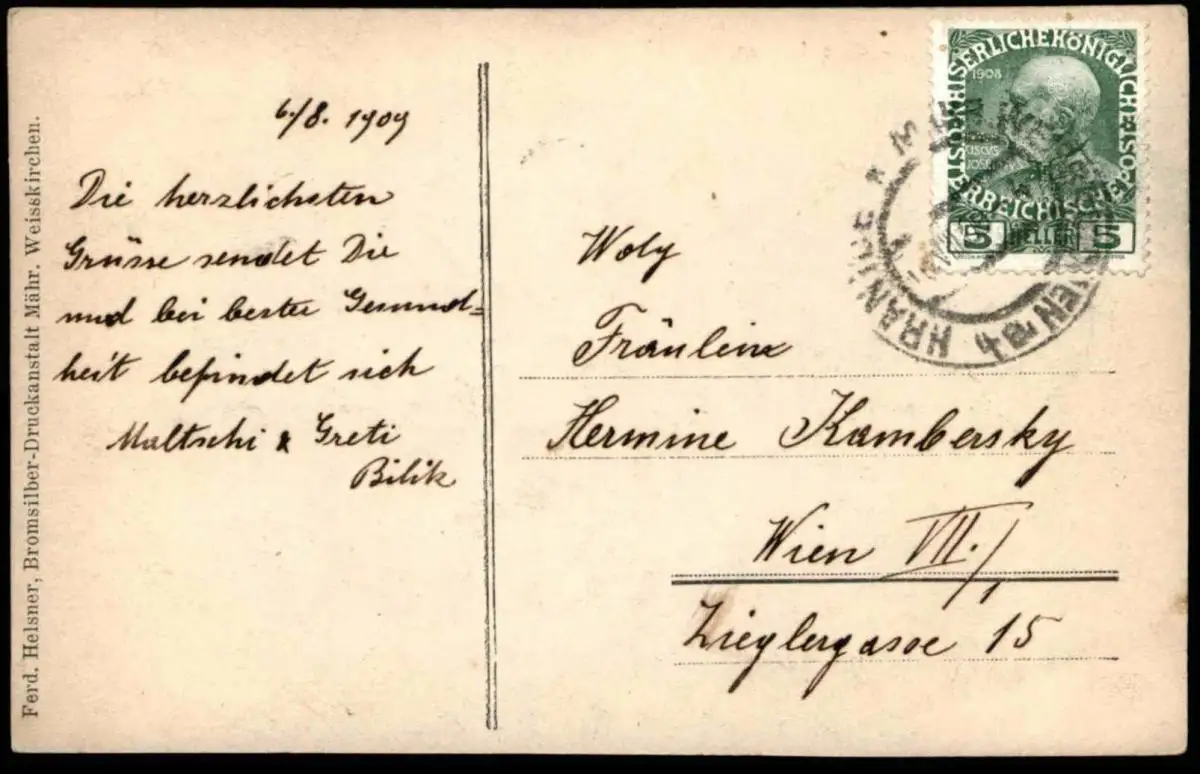 Ferd. Helsner, Bromsilber-Druckanstalt Mähr. Weisskirchen.
6./8. 1909
Die herzlichsten
Grüsse sendet Die
und bei bester Gesund=
heit befindet sich
Maltschi & Greti
Bilik
KAISERLICHE KÖNIGLICHE ÖSTERREICHISCHE
1908
5 HELLER 5
HRANICE
Wolg
Fräulein
Hermine Kambersky
Wien VII./1
Zieglergasse 15